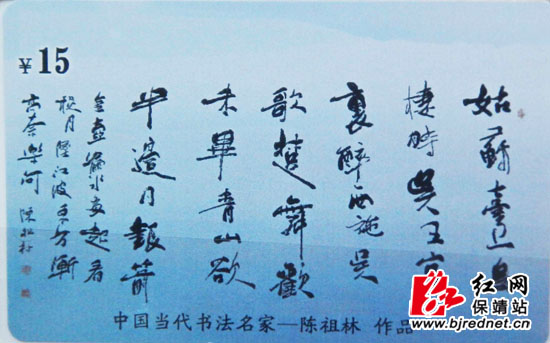 ¥15
姑蘇臺上烏
棲時吳王宮
裏醉西施吳
歌楚舞歡
未畢青山欲
半邊月銀箭
金壺漏水多起看
秋月墜江波東方漸
高奈樂何 陳祖林
中国当代书法名家—陈祖林 作品
红网
保靖站
www.bjrednet.cn